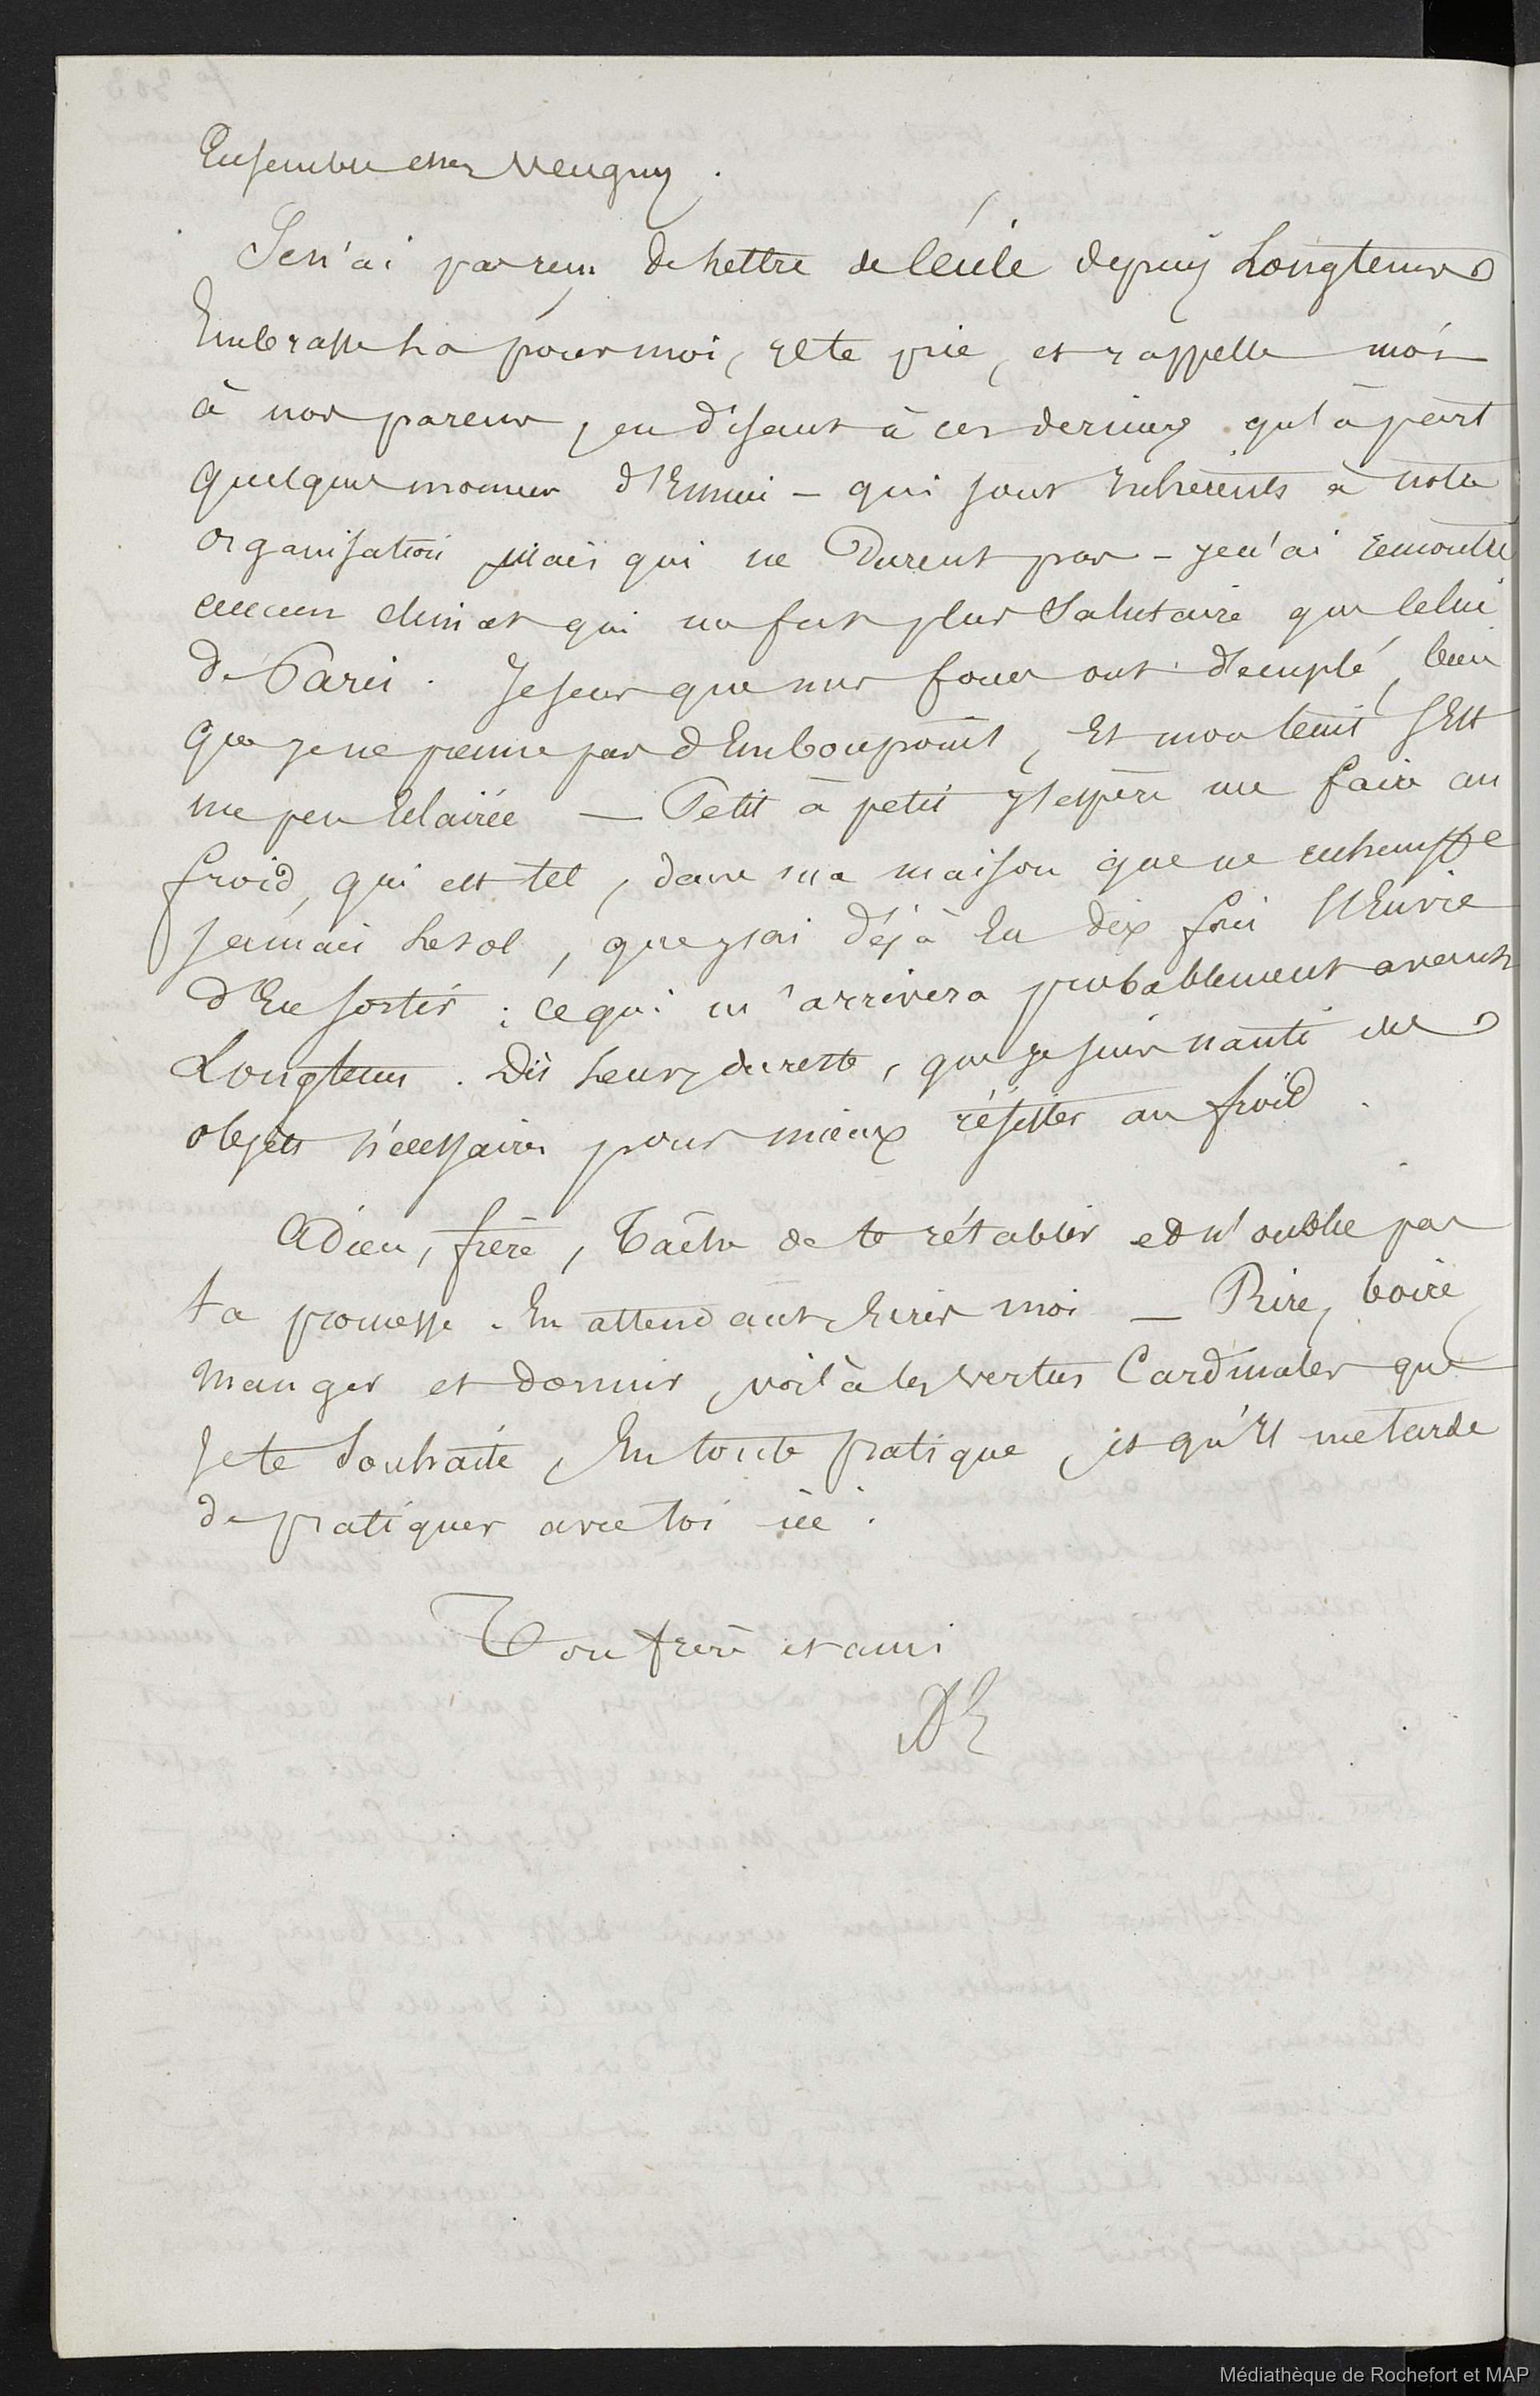 Ensemble chez Meugny.
Je n'ai pas reçu de Lettre de Cécile depuis Longtemps
Embrasse La pour moi, je te prie, et rappelle moi
à nos parens, en disant à ces derniers qu'à part
quelques momens d'Ennui – qui sont Inhérents à notre
organisation mais qui ne Durent pas – je n'ai rencontré
aucun climat qui me fut plus Salutaire que celui
De Paris. Je sens que mes forces ont décuplé, bien
que je ne prenne pas d'Embonpoint, Et mon teint s'Est
un peu Eclairée — Petit à petit j'espère me faire au
froid, qui est tel, dans ma maison que ne rechauffe
Jamais Le sol, que j'ai déjà Eu dix fois l'Envie
d'En sortir : ce qui m'arrivera probablement avant
Longtems. Dis Leur, du reste, que je suis nanti des
objets nécessaires pour mieux résister au froid.
Adieu, frère, Tâche de te rétablir et n'oublie pas
ta promesse. En attendant Ecris moi — Rire, boire,
manger et dormir, voilà les vertus Cardinales que
Je te Souhaite, En toute pratique, et qu'Il me tarde
de pratiquer avec toi ici.
Ton frère et ami
Médiathèque de Rochefort et MAP